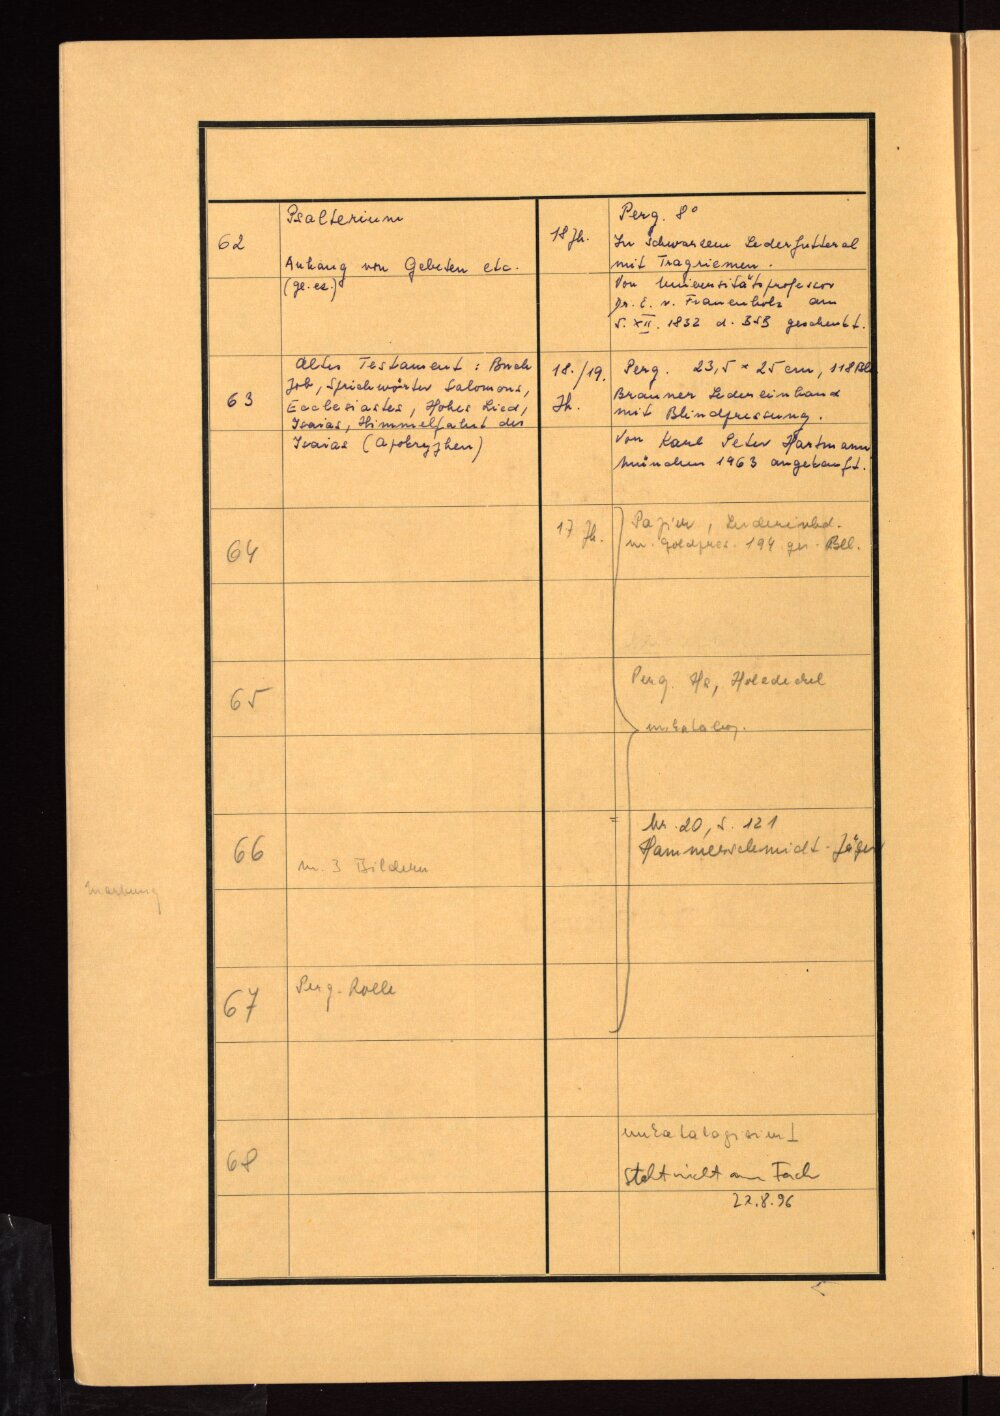 62
Psalterium
Anhang von Gebeten etc.
(ge.ez.)
18 Jh.
Perg. 8°
In schwarzem Lederfutteral
mit Tragriemen.
Von Universitätsprofessor
Dr. E. v. Frauenholz am
5. XII. 1832 d. BSB geschenkt.
63
Altes Testament: Buch
Job, Sprichwörter Salomons,
Ecclesiastes, Hohes Lied,
Isaias, Himmelfahrt des
Isaias (Apokryphen)
18./19.
Jh.
Perg. 23,5 × 25 cm, 118 Bll.
Brauner Ledereinband
mit Blindpressung.
Von Karl Peter Hartmann
München 1963 angekauft.
64
17 Jh.
Papier, Ledereinbd.
m. Goldpres. 194 gez. Bll.
65
Perg. Hs, Holzdeckel
unkatalog.
66
m. 3 Bildern
= Nr. 20, S. 121
Hammerschmidt-Jäger
67
Perg. Rolle
68
unkatalogisiert
steht nicht am Fach
22.8.96